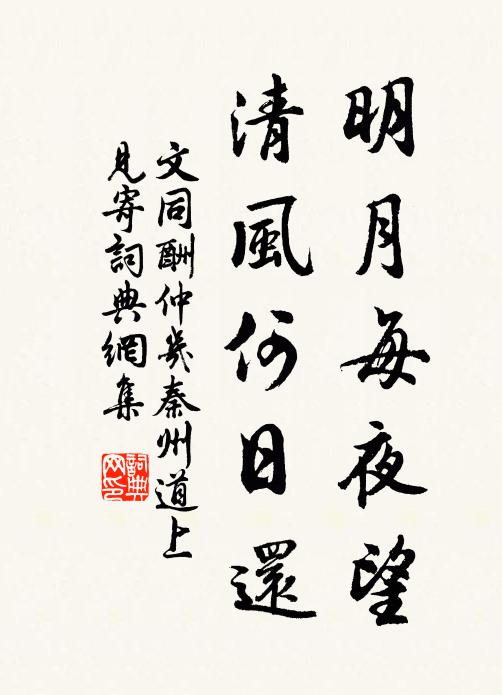 明月每夜望
清風何日還
文同酬仲幾秦州道上
見寄詞典網集
詞典
网印